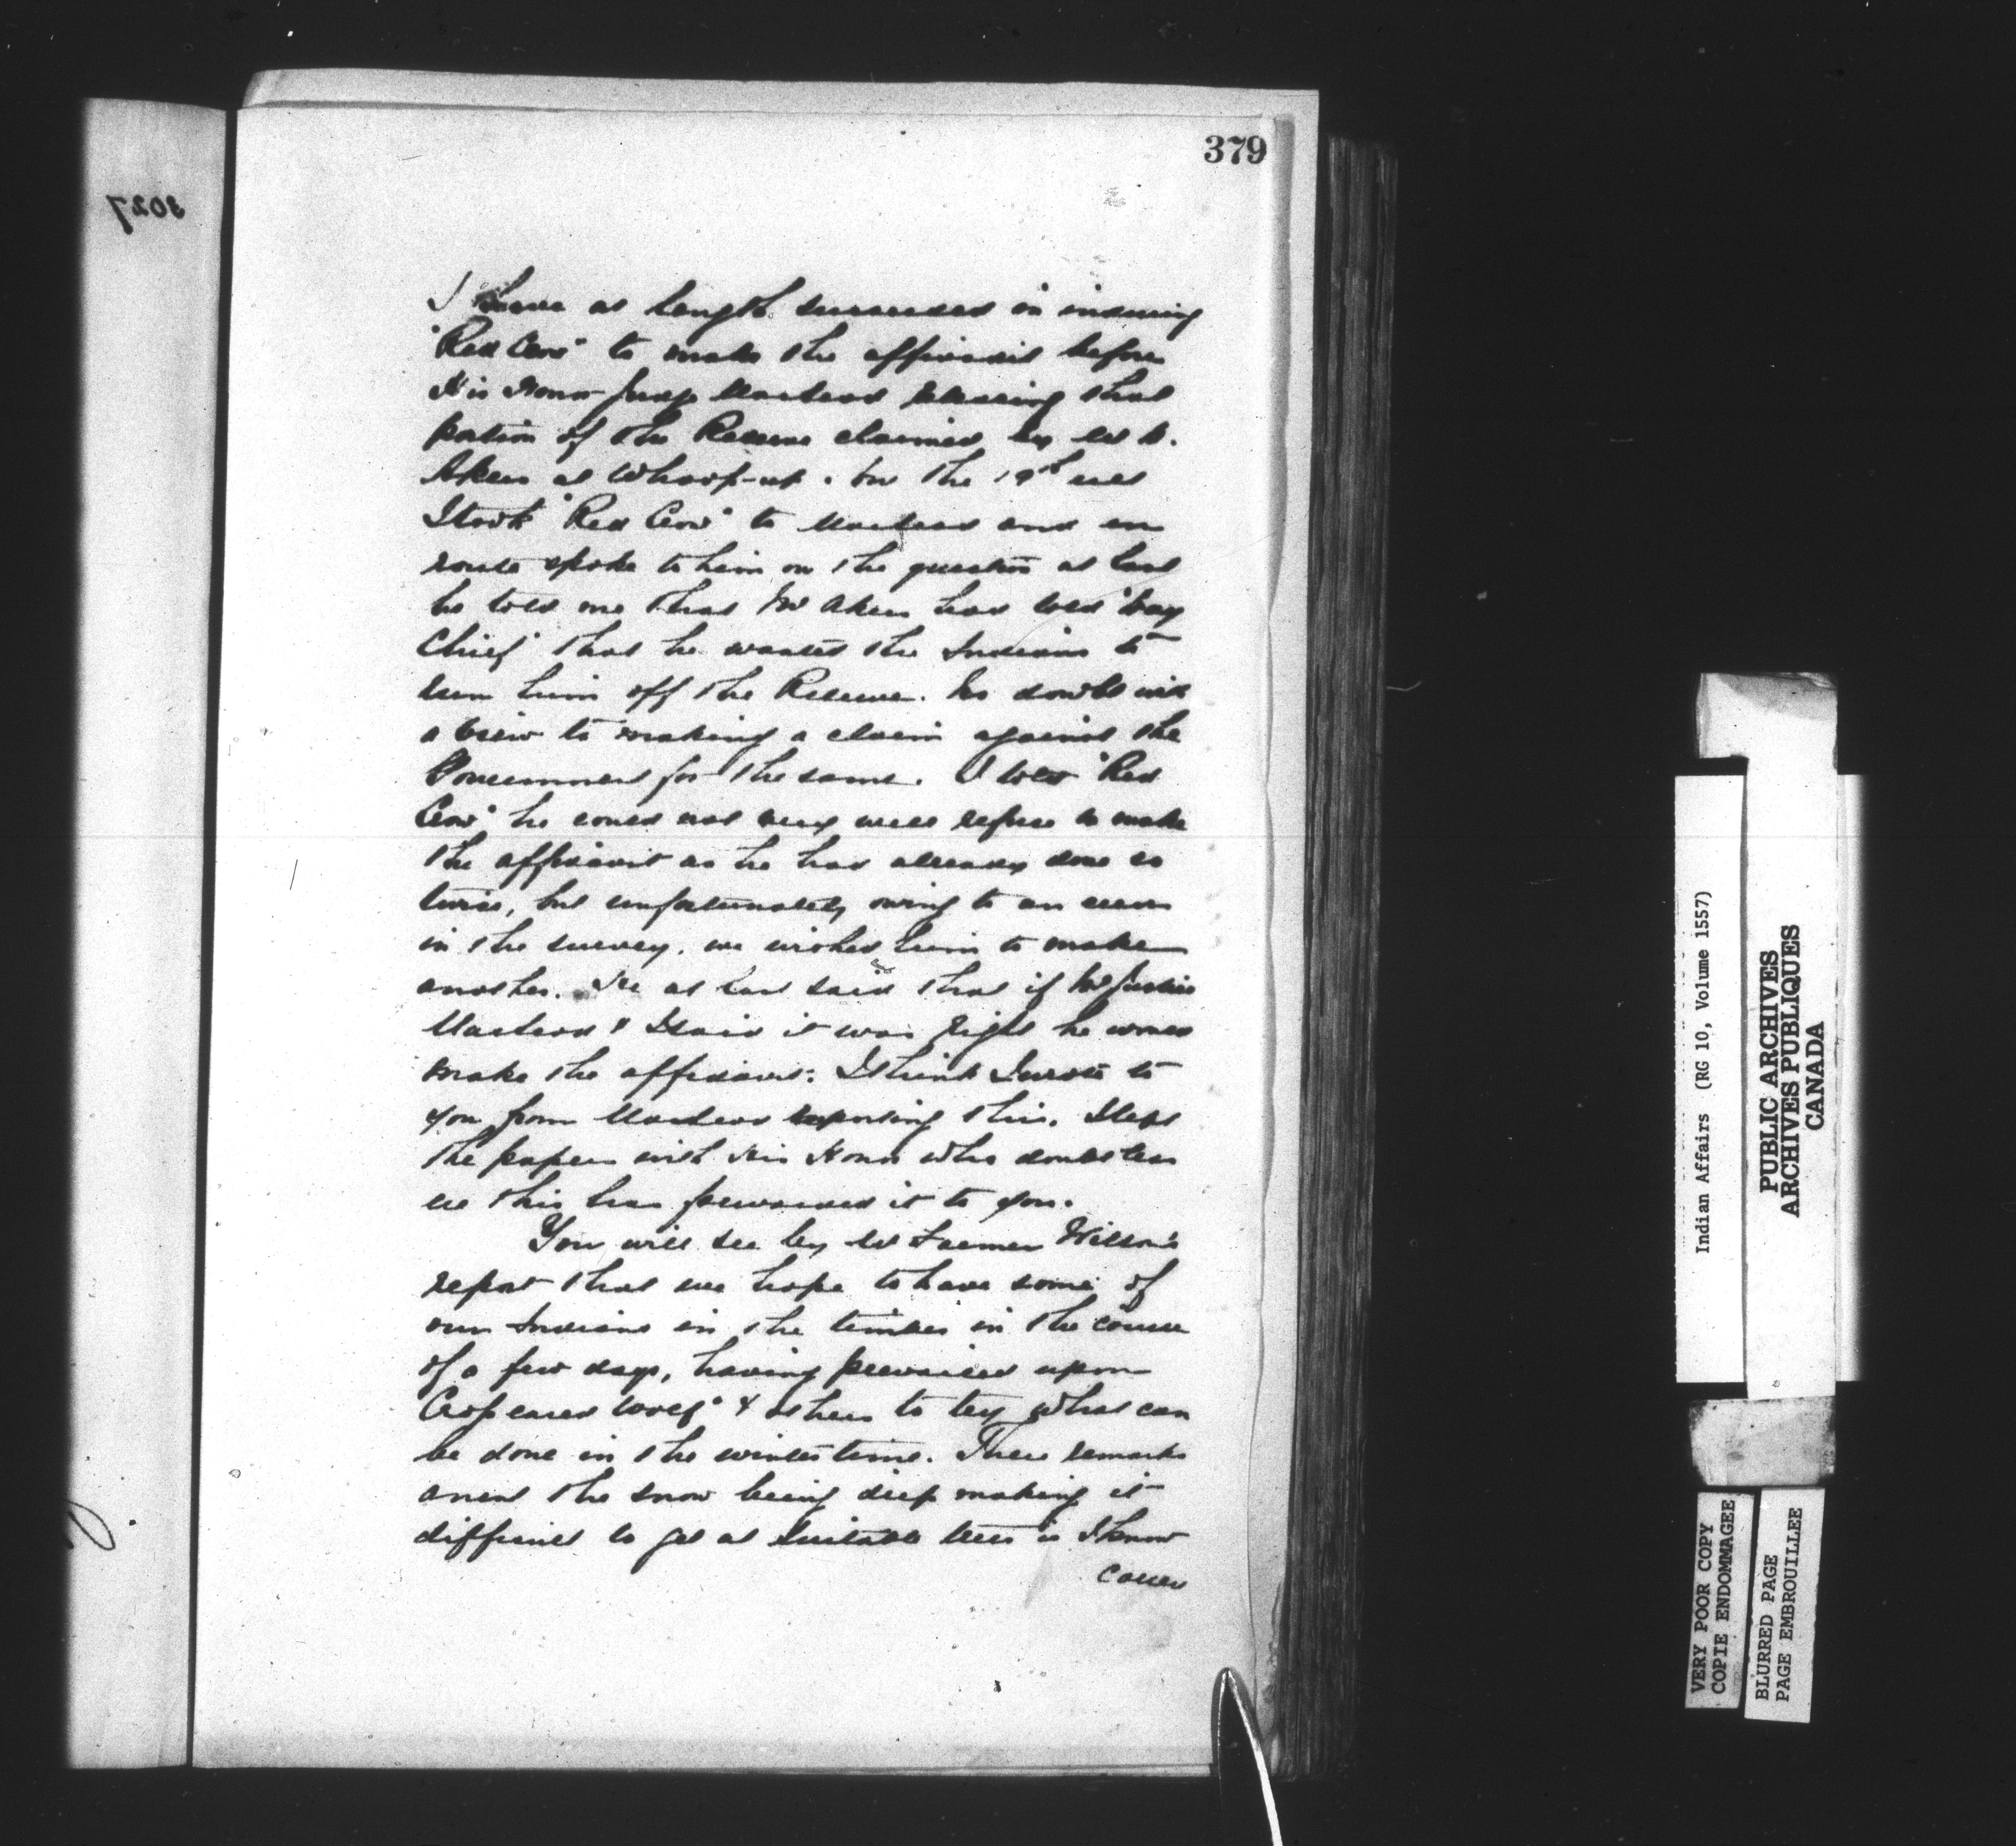 379
3027
I have at length succeeded in inducing
"Red Crow" to make the affidavit before
His Honor Judge Macleod releasing that
portion of the Reserve claimed by Mr D.
Akers at Whoop-up. On the 19th
I took "Red Crow" to Macleod and en
route spoke to him on the question at last
he told me that Mr Akers had told "Day
Chief" that he wanted the Indians to
turn him off the Reserve. No doubt with
a view to making a claim against the
Government for the same. I told "Red
Crow" he could not very well refuse to make
the affidavit as he had already done so
twice, but unfortunately owing to an error
in the survey, we wished him to make
another. He at last said that if Mr Justice
Macleod & I said it was right he would
make the affidavit: I think I wrote to
you from Macleod reporting this. I left
the papers with His Honor who doubtless
ere this has forwarded it to you.
You will see by Mr Farmer Wilson's
report that we hope to have some of
our Indians in the timber in the course
of a few days, having prevailed upon
"Crop eared Wolf" & others to try what can
be done in the winter time. Their remarks
anent the snow being deep making it
difficult to get at suitable trees is I know
correct
Indian Affairs (RG 10, Volume 1557)
PUBLIC ARCHIVES
ARCHIVES PUBLIQUES
CANADA
VERY POOR COPY
COPIE ENDOMMAGEE
BLURRED PAGE
PAGE EMBROUILLEE